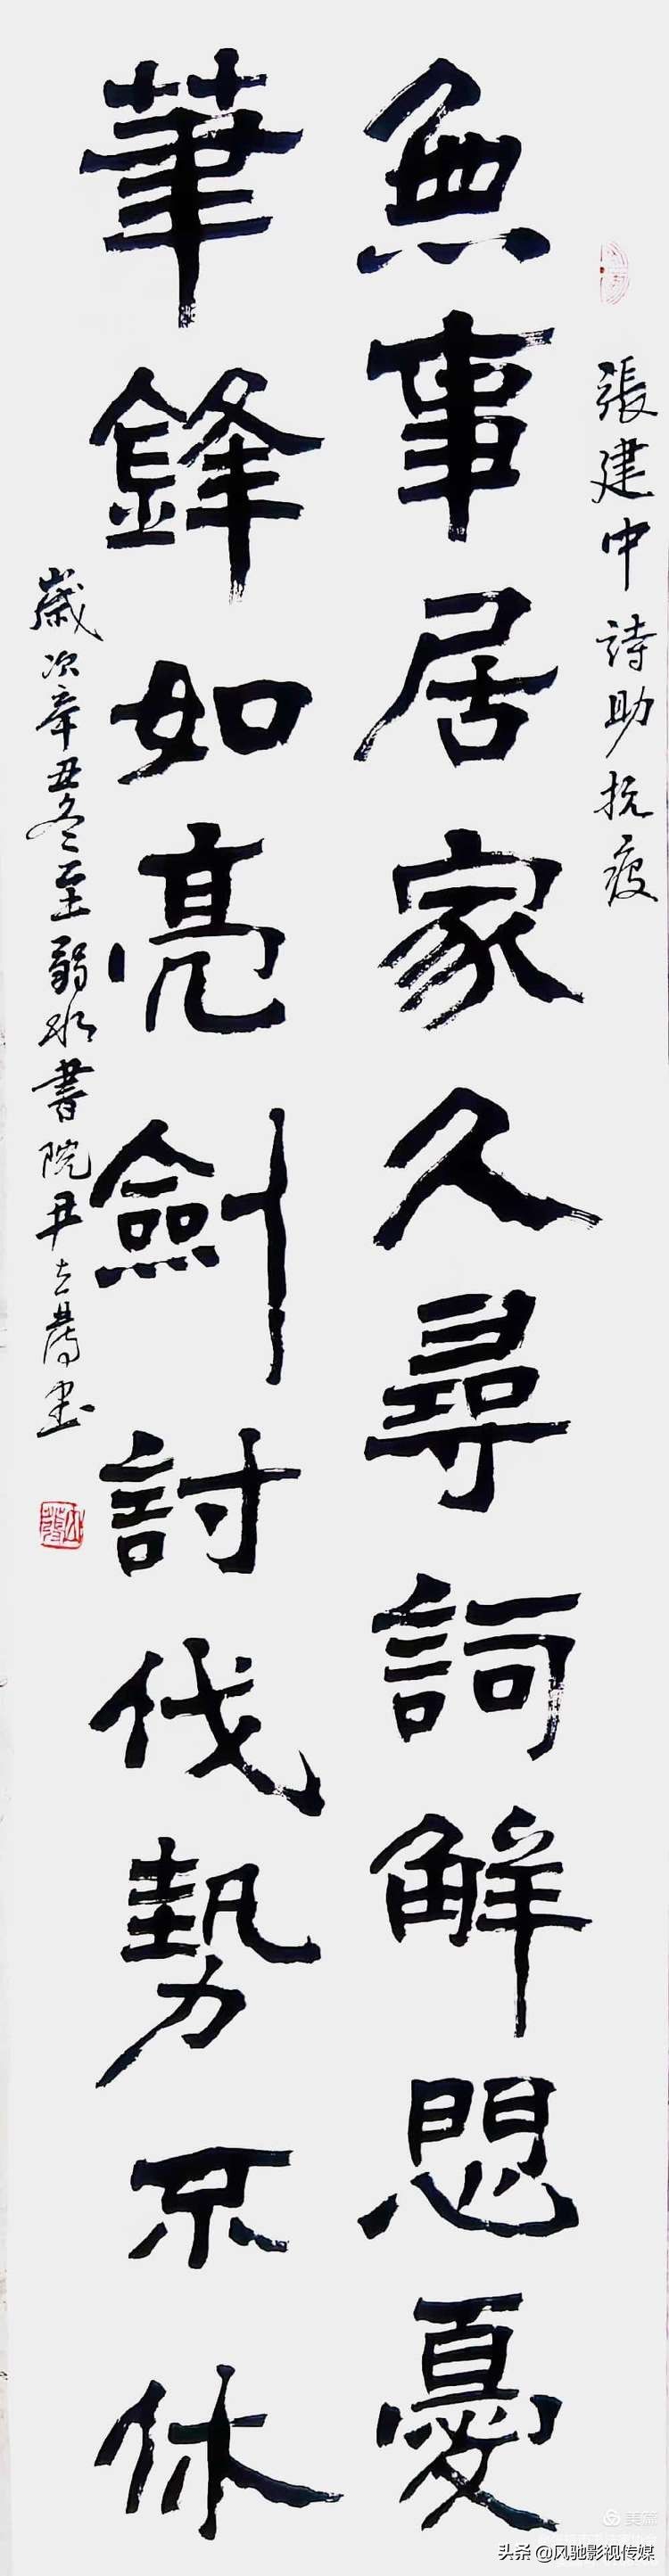 張建中詩助抗疫
無事居家久尋詞解悶憂
筆鋒如亮劍討伐勢不休
歲次辛丑冬至弱水書院尹立善書
美篇
头条 @风驰影视传媒